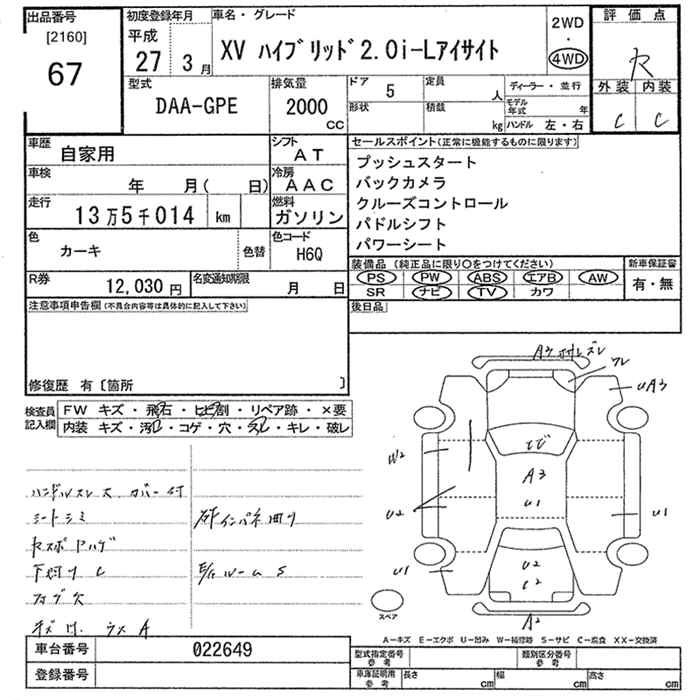 出品番号
[2160]
67
初度登録年月
平成
27年 3月
車名・グレード
XV ハイブリッド2.0i-Lアイサイト
2WD
・
4WD
評価点
R
外装 内装
C C
型式
DAA-GPE
排気量
2000
CC
ドア 5
形状
定員 人
積載 kg
ディーラー・並行
モデル年式 年
ハンドル 左・右
車歴 自家用
シフト AT
車検 年 月( 日)
冷房 AAC
走行 13万5千014 km
燃料 ガソリン
色 カーキ
色替
色コード H6Q
R券 12,030円
名変通知期限 月 日
セールスポイント(正常に機能するものに限ります)
プッシュスタート
バックカメラ
クルーズコントロール
パドルシフト
パワーシート
装備品 (純正品に限り○をつけてください)
PS PW ABS エアB AW
SR ナビ TV カワ
新車保証書
有・無
後日品
注意事項申告欄(不具合内容等は具体的に記入して下さい)
修復歴 有〔箇所 〕
検査員記入欄
FW キズ・飛石・ヒビ割・リペア跡・×要
内装 キズ・汚レ・コゲ・穴・スレ・キレ・破レ
ハンドルスレ大 カバー付
シートシミ
下廻り C
A3
ワレ
UA3
W2
ヒビ
A3
U1
U2
U1
U1
U2
A2
スペア
A-キズ E-エクボ U-凹み W-補修跡 S-サビ C-腐食 XX-交換済
車台番号 022649
登録番号
型式指定番号 参考
類別区分番号 参考
車庫証明用 参考
長さ cm
幅 cm
高さ cm